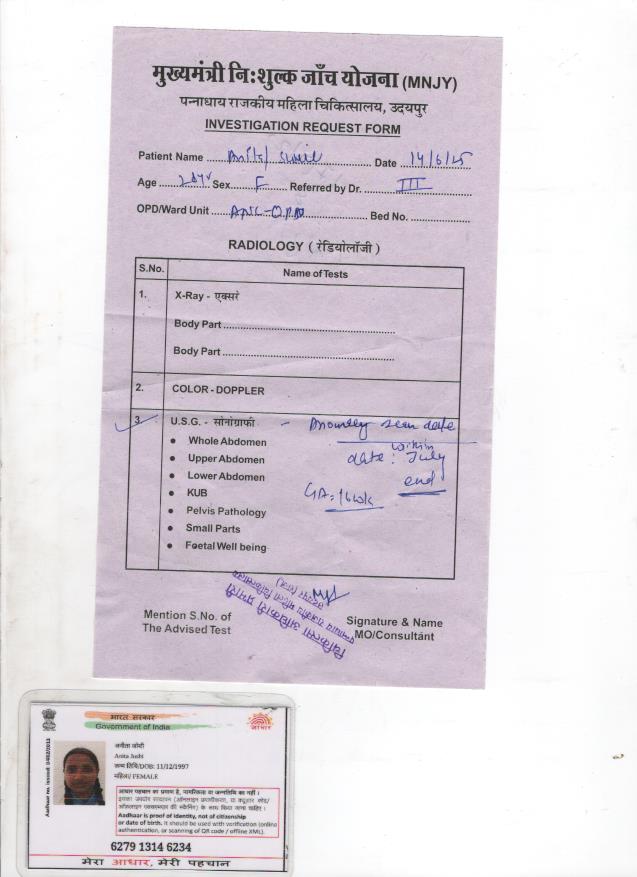 मुख्यमंत्री नि:शुल्क जाँच योजना (MNJY)
पन्नाधाय राजकीय महिला चिकित्सालय, उदयपुर
INVESTIGATION REQUEST FORM
Patient Name ........ Date 14/6/25
Age ........ Sex F Referred by Dr. III
OPD/Ward Unit ANC-OPD Bed No. ........
RADIOLOGY ( रेडियोलॉजी )
S.No. Name of Tests
1. X-Ray - एक्सरे
Body Part ........
Body Part ........
2. COLOR - DOPPLER
3. U.S.G. - सोनोग्राफी - scan date
Whole Abdomen within
Upper Abdomen date: July
Lower Abdomen end
KUB GA = 16wk
Pelvis Pathology
Small Parts
Foetal Well being
चिकित्सा अधिकारी प्रभारी
पन्नाधाय राजकीय महिला चिकित्सालय
उदयपुर (राज.)
Mention S.No. of
The Advised Test
Signature & Name
MO/Consultant
भारत सरकार
Government of India
आधार
अनीता जोशी
Anita Joshi
जन्म तिथि/DOB: 11/12/1997
महिला/ FEMALE
आधार पहचान का प्रमाण है, नागरिकता या जन्मतिथि का नहीं ।
Aadhaar is proof of identity, not of citizenship
or date of birth. It should be used with verification (online
authentication, or scanning of QR code / offline XML).
6279 1314 6234
मेरा आधार, मेरी पहचान